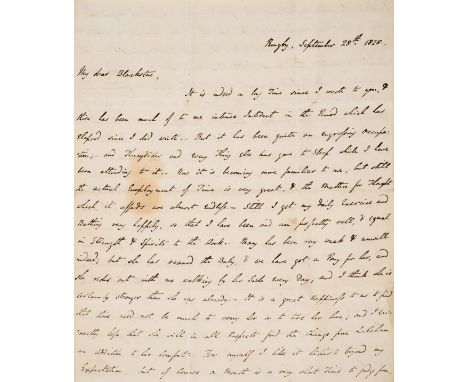 Rugby, September 28th. 1828.
My dear Blackstone,
It is indeed a long Time since I wrote to you, &
there has been much of to me intense Interest in the Period which has
elapsed since I did write. – But it has been quite an engrossing Occupa-
tion; and Thucydides and every Thing else has gone to Sleep while I have
been attending to it. – Now it is becoming more familiar to me, but still
the actual Employment of Time is very great, & the Matters for Thought
which it affords are almost endless. – Still I get my daily Exercise and
Bathing very happily, so that I have been and am perfectly well, & equal
in Strength & Spirits to the Work. Mary has been very weak & unwell
indeed; but she has weaned the Baby & we have got a Pony for her, and
she rides out with me walking by her Side every Day; and I think she is
certainly stronger than she was already. – It is a great Happiness to me to find
that there need not be much to worry her or to tire her here; and I ear-
nestly hope that she will in all Respects find the Change from Laleham
an Addition to her Comfort. – For myself I like it hitherto beyond my
Expectation – but of course a Month is a very short Time to judge from